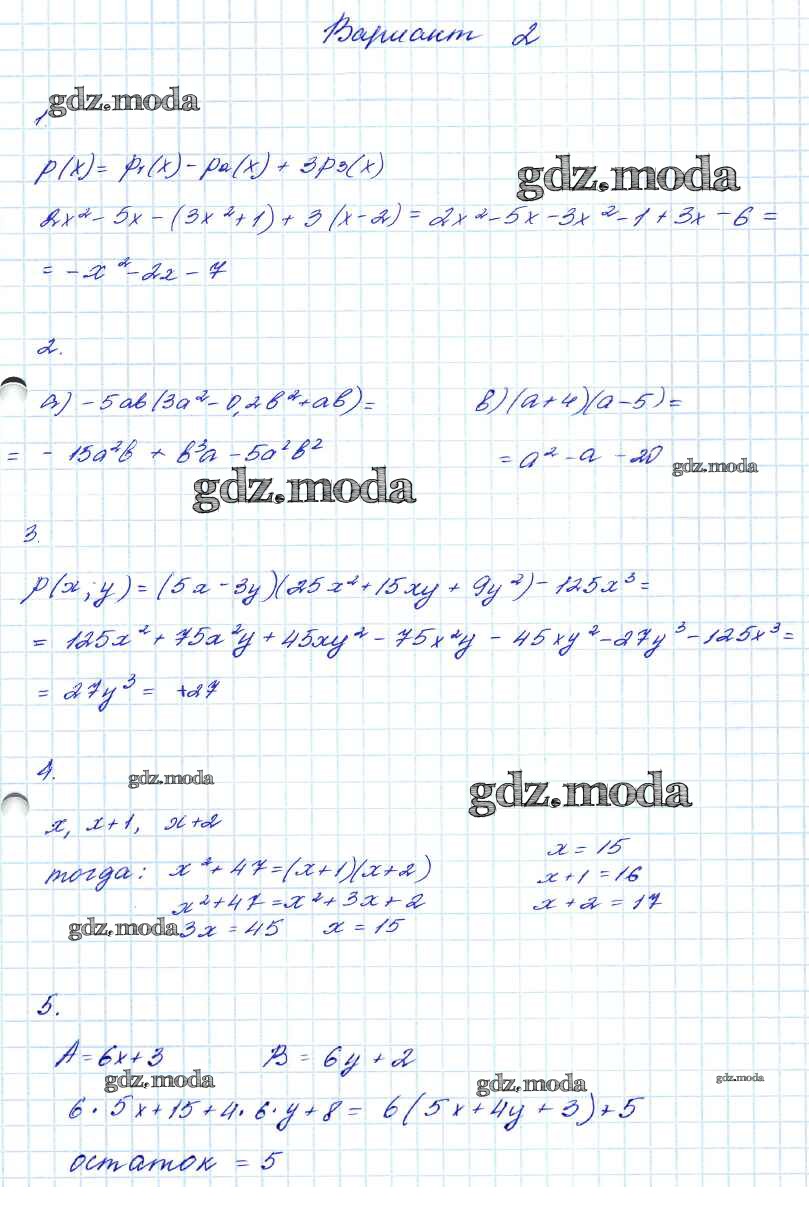 Вариант 2
gdz.moda
1.
p(x) = p₁(x) - p₂(x) + 3p₃(x)
gdz.moda
2x² - 5x - (3x² + 1) + 3(x - 2) = 2x² - 5x - 3x² - 1 + 3x - 6 =
= -x² - 2x - 7
2.
а) -5ab(3a² - 0,2b² + ab) = в) (a+4)(a-5) =
= - 15a²b + b³a - 5a²b² = a² - a - 20 gdz.moda
gdz.moda
3.
p(x;y) = (5x - 3y)(25x² + 15xy + 9y²) - 125x³ =
= 125x² + 75x²y + 45xy² - 75x²y - 45xy² - 27y³ - 125x³ =
= 27y³ = +27
4. gdz.moda gdz.moda
x, x+1, x+2
тогда: x² + 47 = (x+1)(x+2) x = 15
x² + 47 = x² + 3x + 2 x+1 = 16
gdz.moda 3x = 45 x = 15 x + 2 = 17
5.
A = 6x + 3 B = 6y + 2
gdz.moda gdz.moda gdz.moda
6·5x + 15 + 4·6·y + 8 = 6(5x + 4y + 3) + 5
остаток = 5